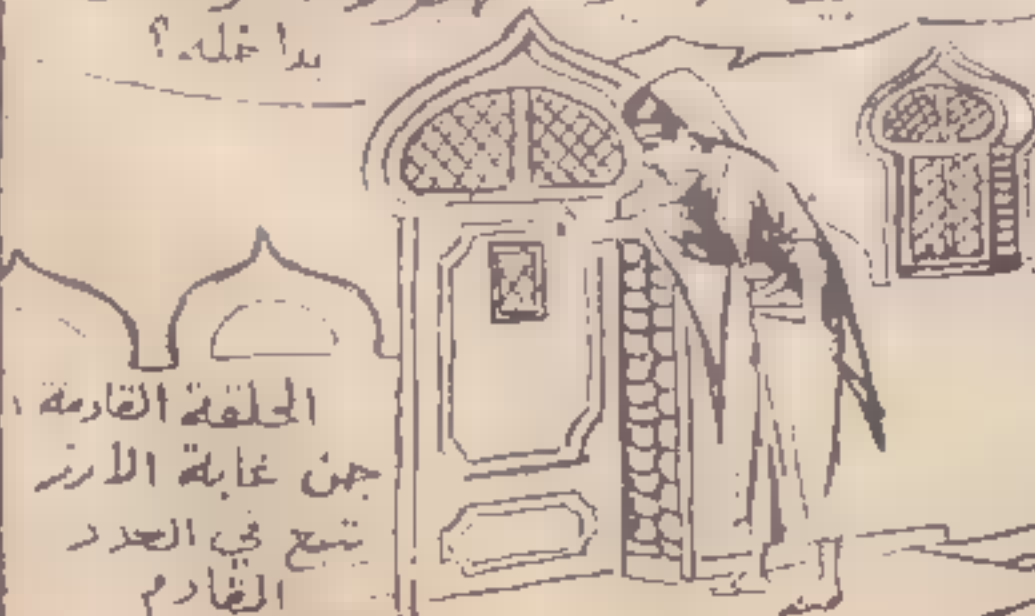 بدا خله؟
الحلقة القادمة
جن غابة الأرز
تتبع في العدد
القادم